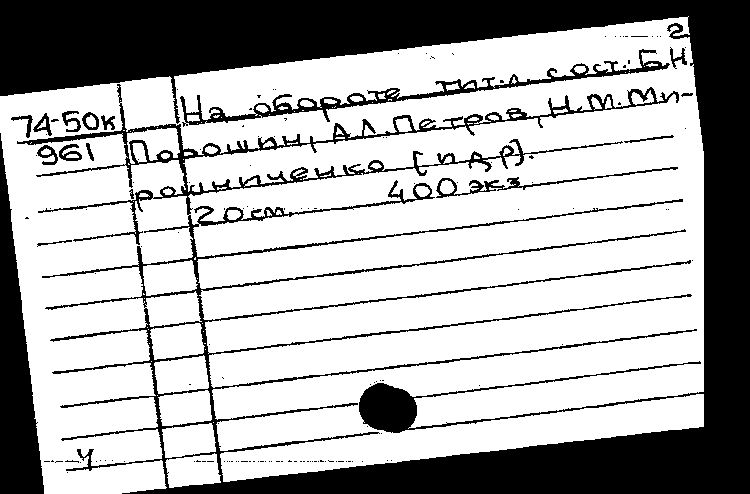 2
74-50к На обороте тит.л. сост. Б.Н.
961 Порошин, А.Л.Петров, Н.М.Ми-
рошниченко [и др].
20 см. 400 экз.
Ч